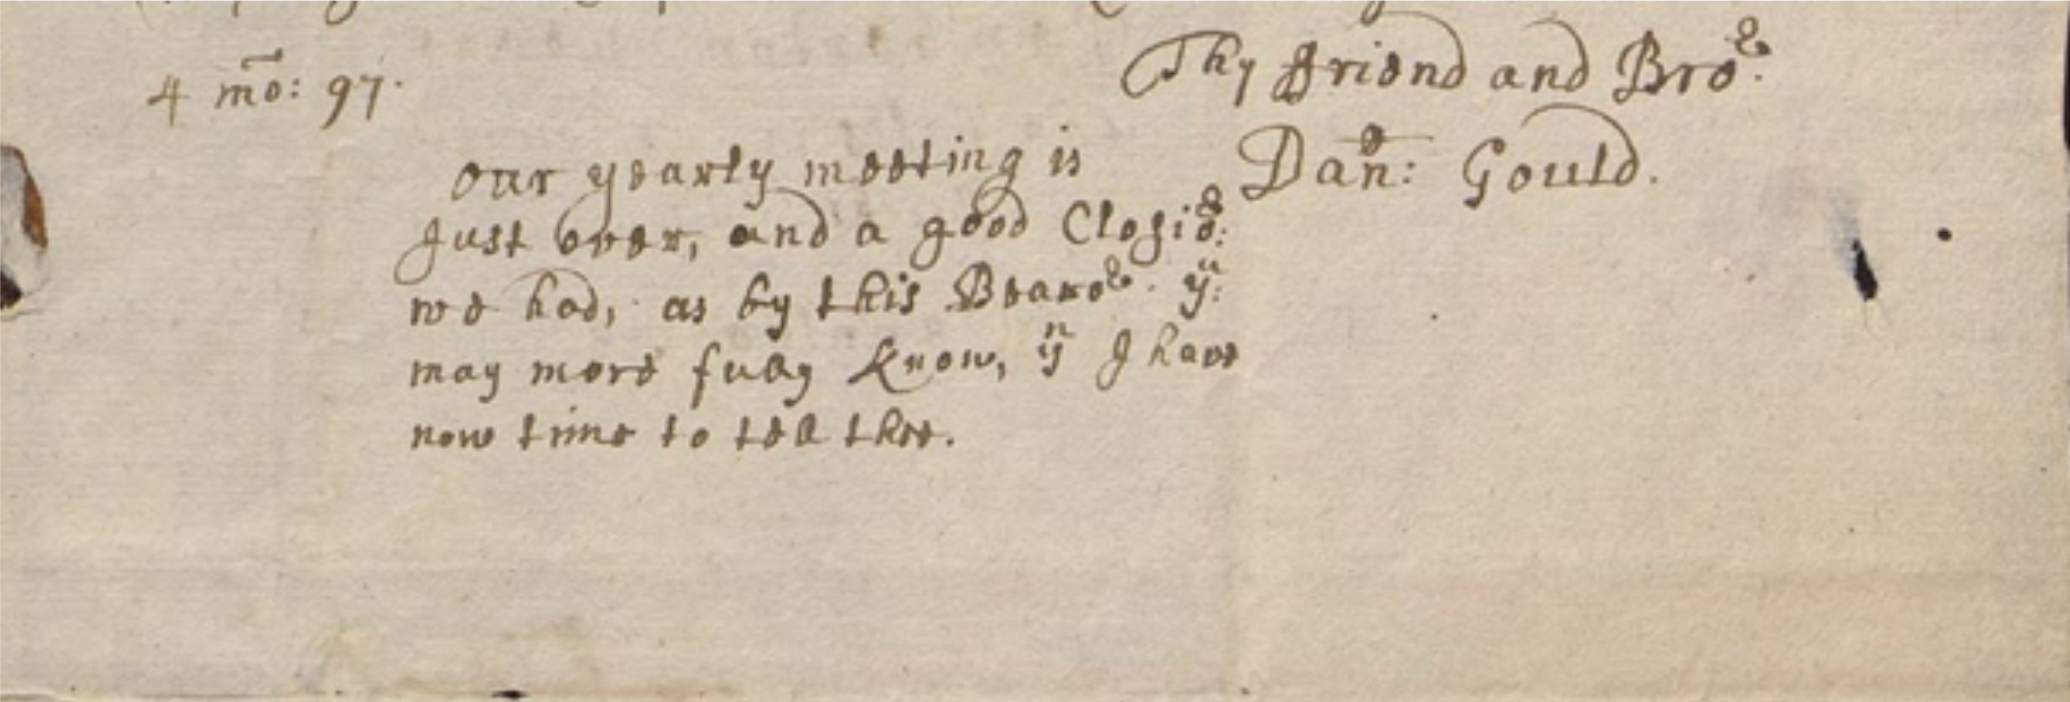 Thy ffriend and Bro:
4 mo: 97.
Dan: Gould.
our yearly meeting is
Just over, and a good
we had, as by this Bearer yu:
may more fully know, yn I have
now time to tell thee.